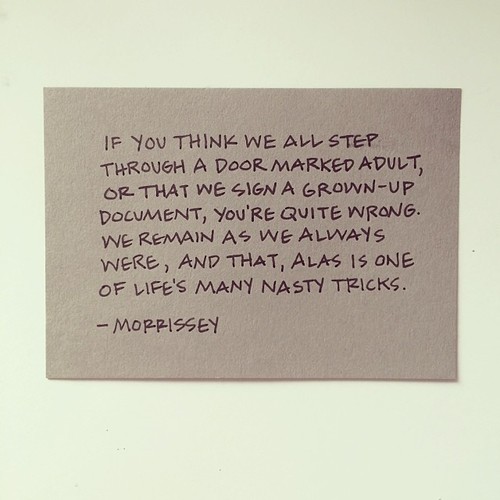 IF YOU THINK WE ALL STEP
THROUGH A DOOR MARKED ADULT,
OR THAT WE SIGN A GROWN-UP
DOCUMENT, YOU'RE QUITE WRONG.
WE REMAIN AS WE ALWAYS
WERE, AND THAT, ALAS IS ONE
OF LIFE'S MANY NASTY TRICKS.
– MORRISSEY